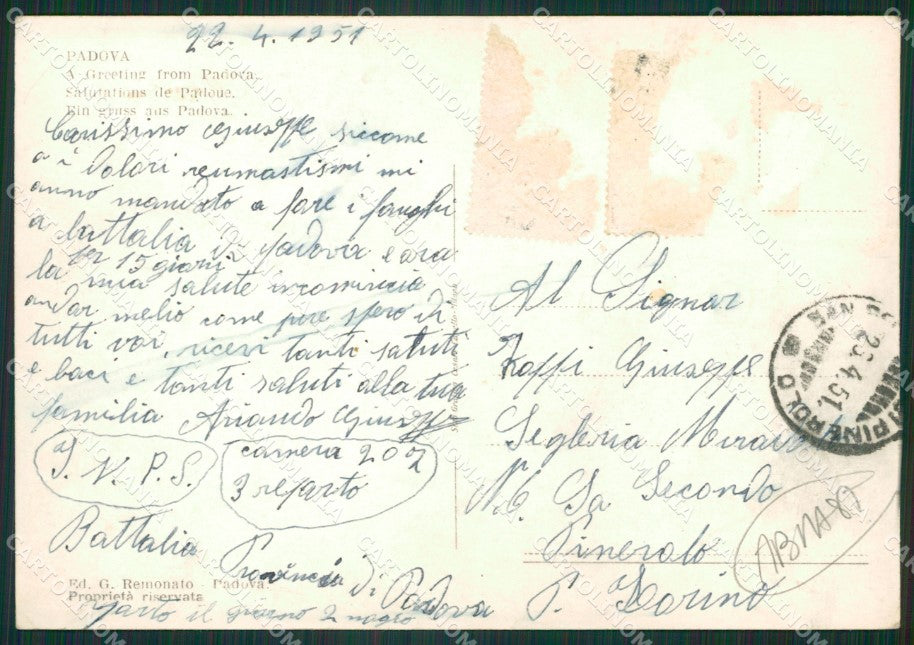 22.4.1951
PADOVA
A Greeting from Padova.
Salutations de Padoue.
Ein gruss aus Padova.
Carissimo Giuseppe siccome
a i dolori reumastismi mi
anno mandato a fare i fanghi
a Battalia di Padova e ora
per 15 giorni
la mia salute incomincia
andar melio come pure spero di
tutti voi, ricevi tanti saluti
e baci e tanti saluti alla tua
familia Ariaudo Giuseppe
I.N.P.S.
camera 202
3 reparto
Battalia Provincia di Padova
Ed. G. Remonato - Padova.
Proprietà riservata
parto il giorno 2 magio
Al Signor
Zoppi Giuseppe
Segheria
San Secondo
Pinerolo
P. Torino
SAN SE
26.4.51
PINEROLO
CARTOLINOMANIA